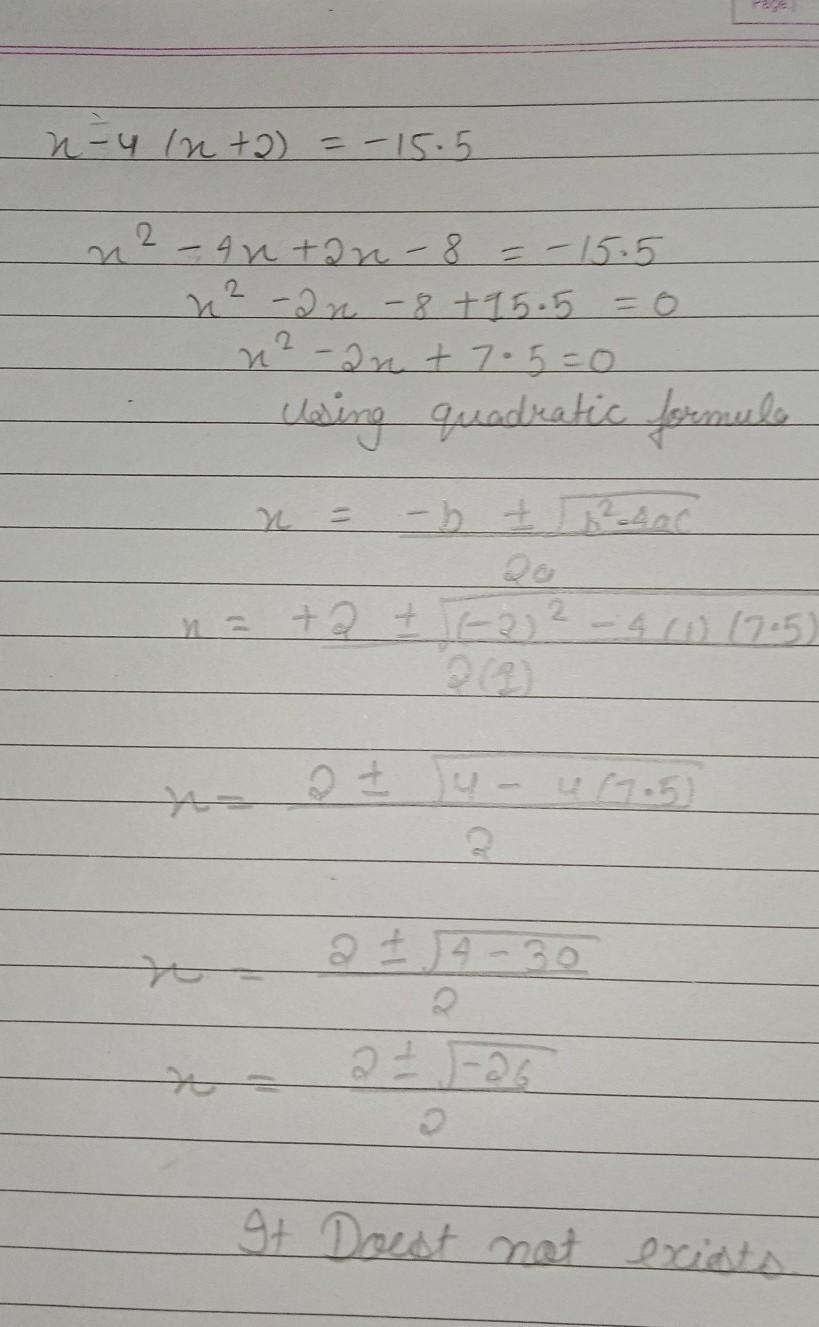 Page
x-4 (x+2) = -15.5
x² - 4x + 2x - 8 = -15.5
x² - 2x - 8 + 15.5 = 0
x² - 2x + 7.5 = 0
Using quadratic formula
x = -b ± √b²-4ac
2a
x = +2 ± √(-2)² - 4(1)(7.5)
2(1)
x = 2 ± √4 - 4(7.5)
2
x = 2 ± √4 - 30
2
x = 2 ± √-26
2
It Doest not exists